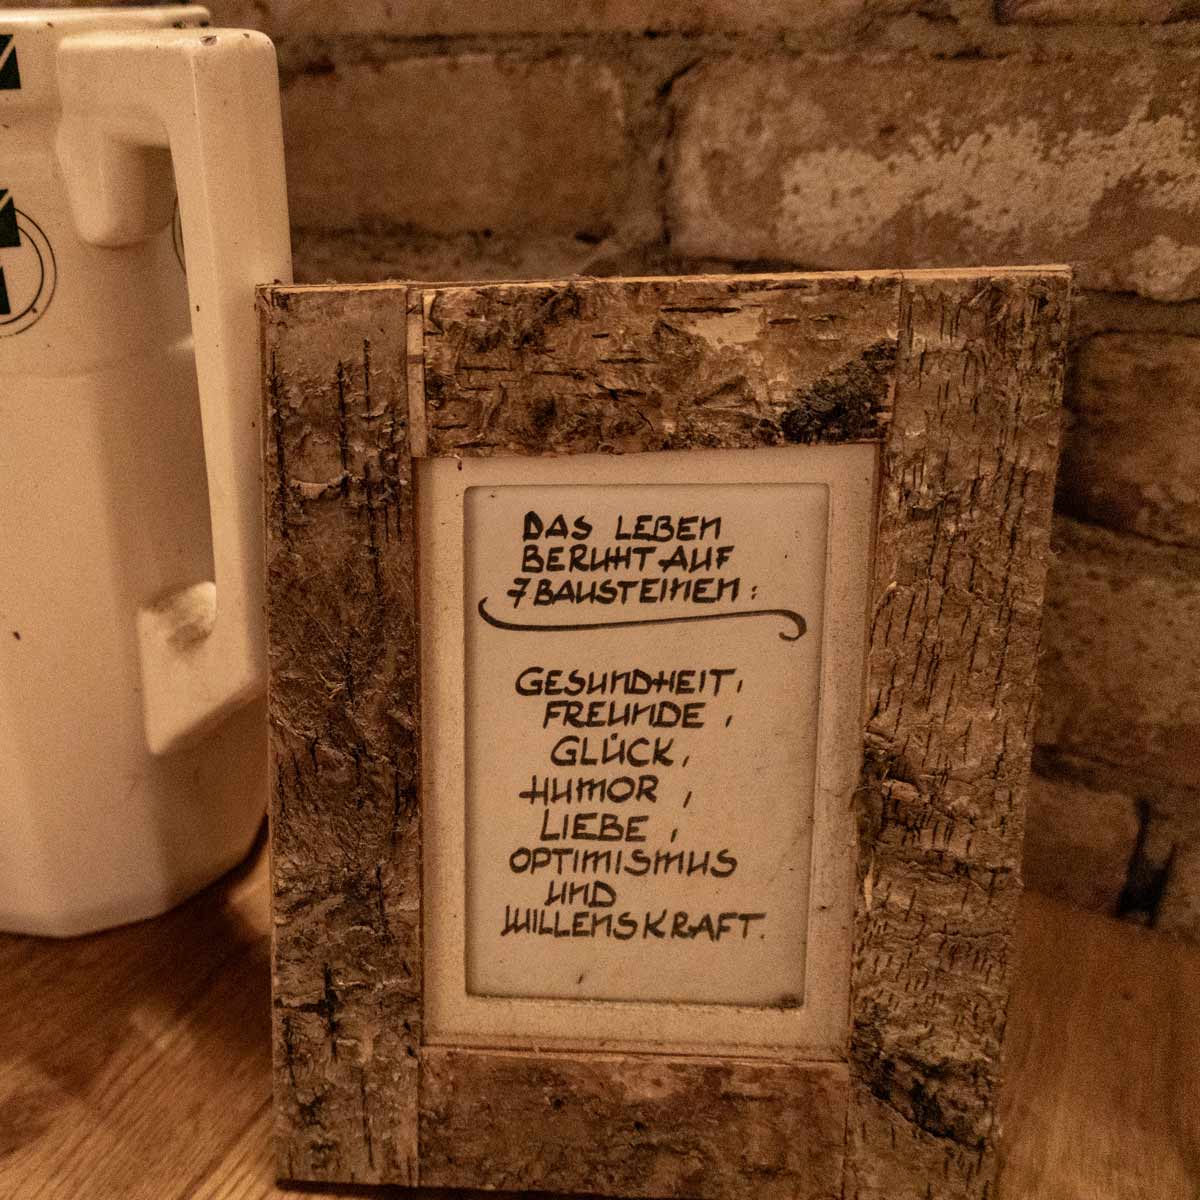 DAS LEBEN
BERUHT AUF
7 BAUSTEINEN:
GESUNDHEIT,
FREUNDE,
GLÜCK,
HUMOR,
LIEBE,
OPTIMISMUS
UND
WILLENSKRAFT.